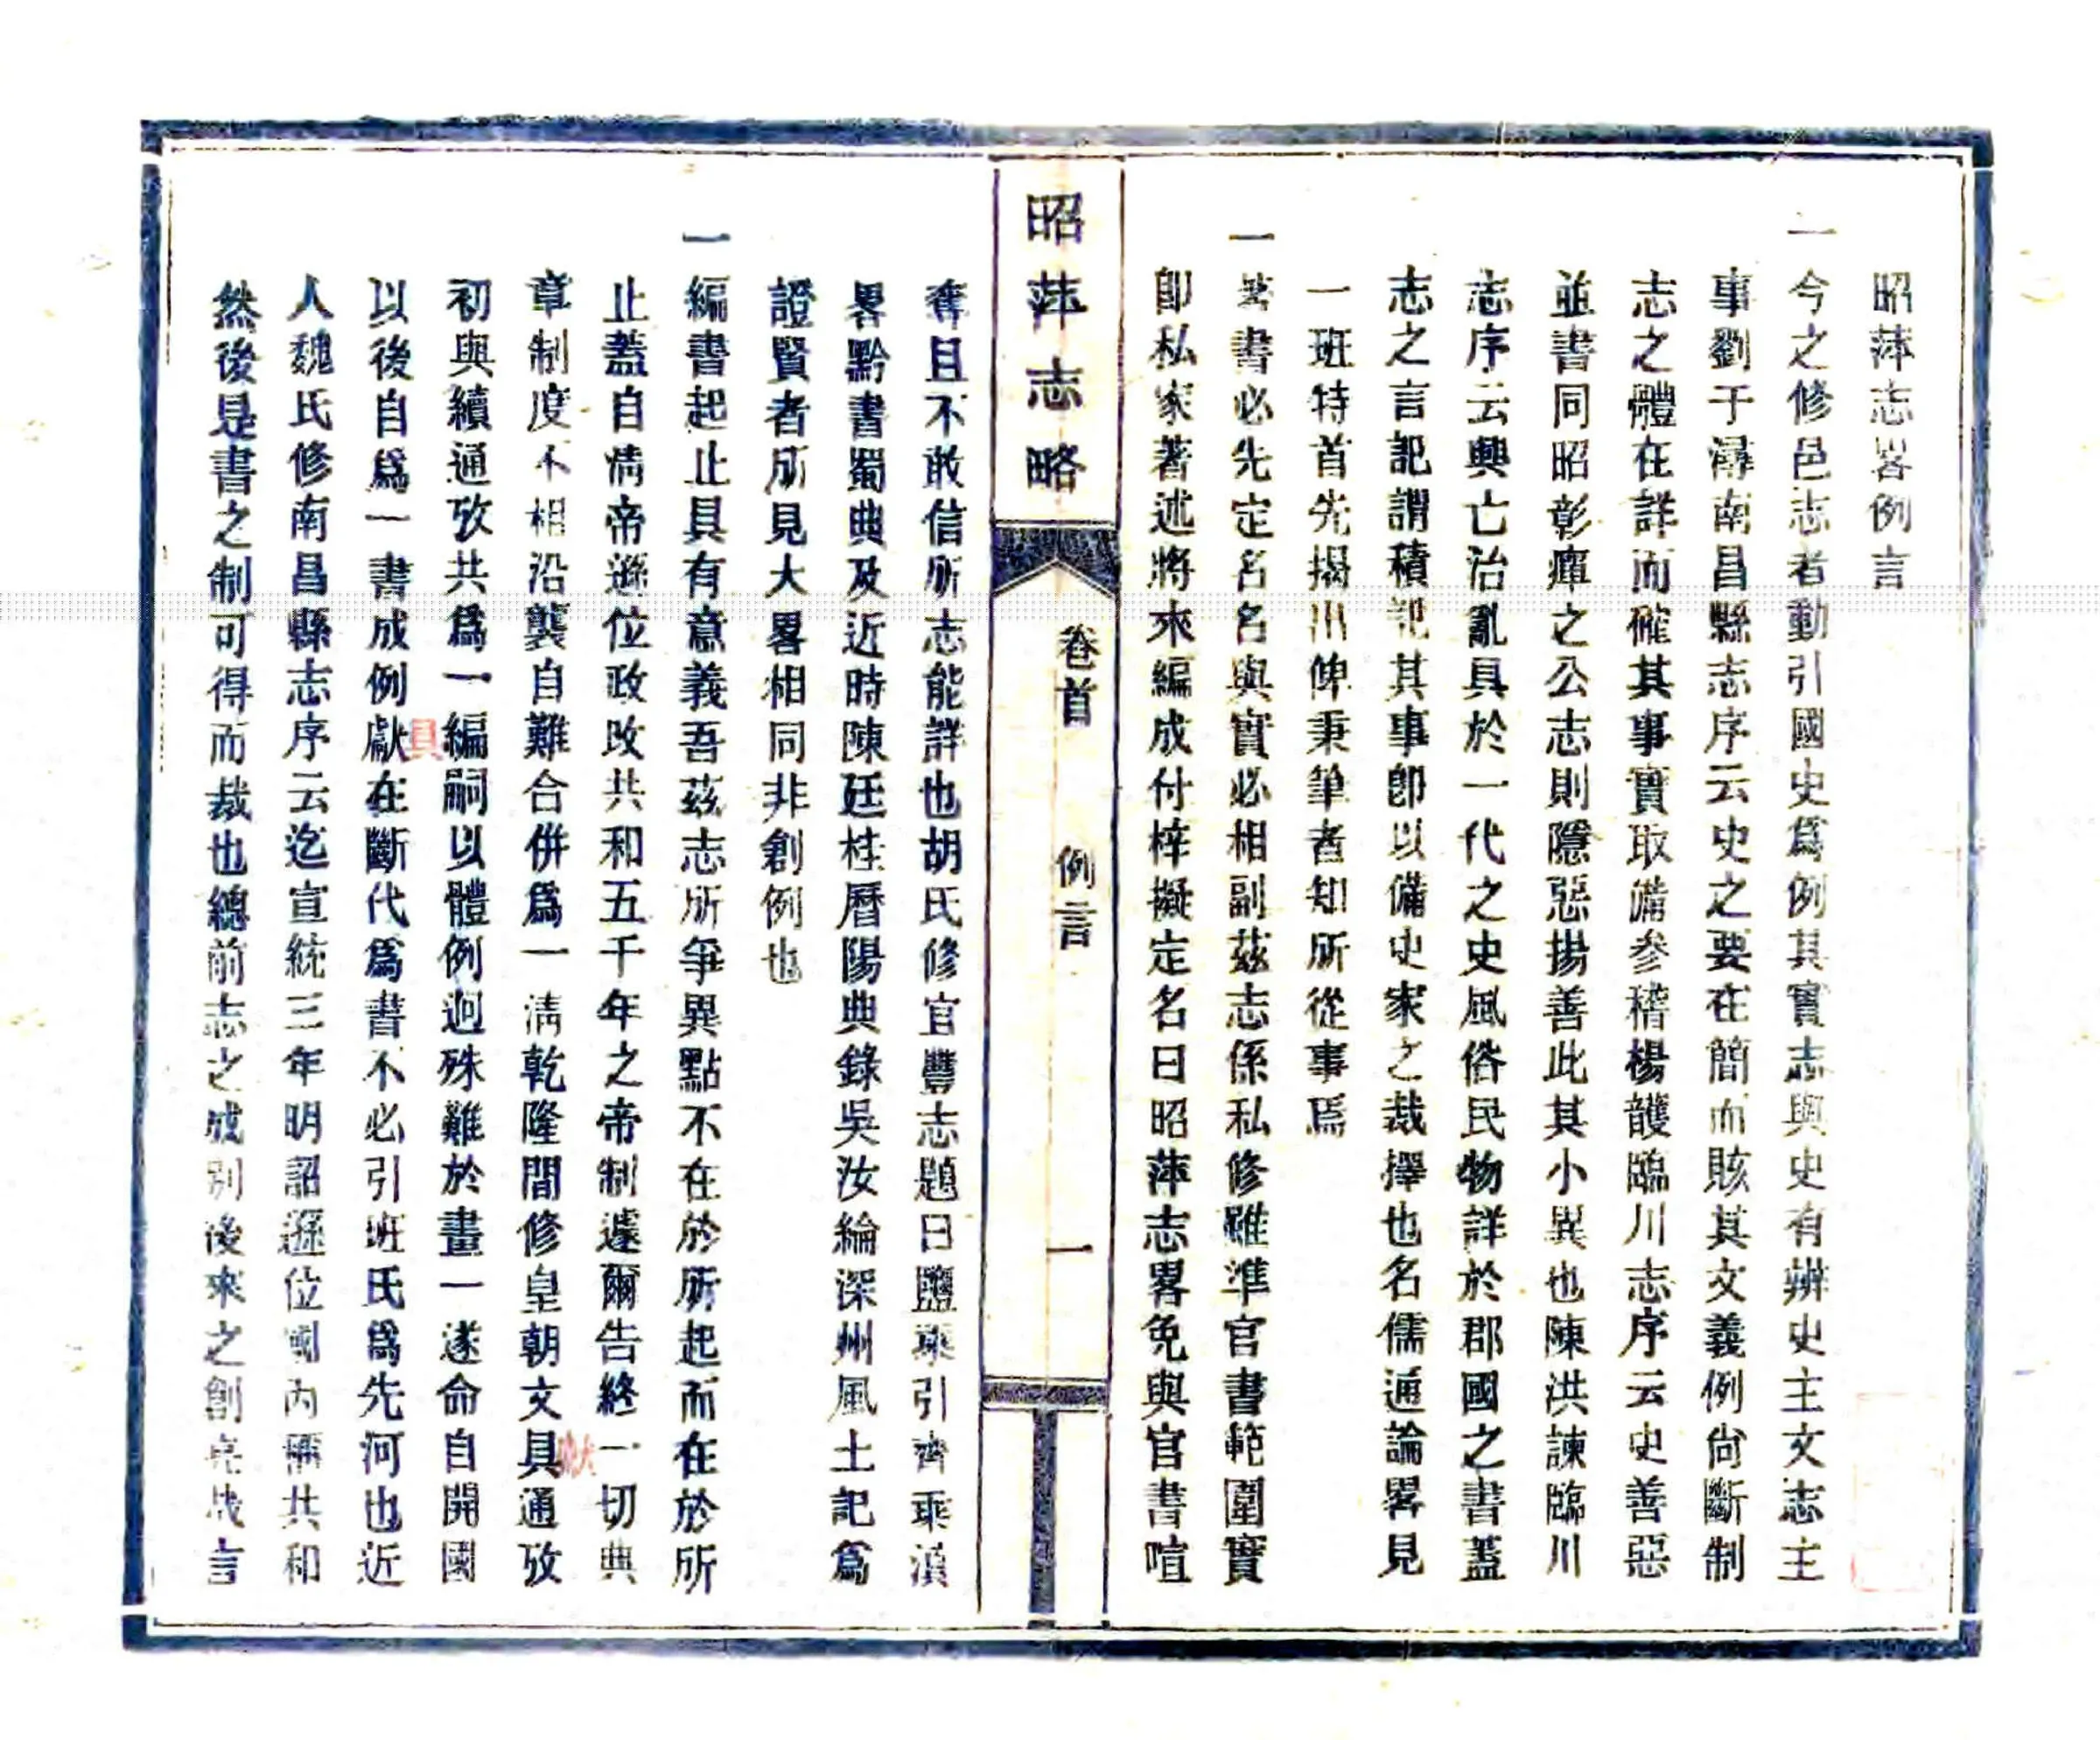 昭萍志畧例言
一今之修邑志者動引國史爲例其實志與史有辨史主文志主
事劉于潯南昌縣志序云史之要在簡而賅其文義例尙斷制
志之體在詳而確其事實取備參稽楊頀臨川志序云史善惡
並書同昭彰癉之公志則隱惡揚善此其小異也陳洪諫臨川
志序云興亡治亂具於一代之史風俗民物詳於郡國之書蓋
志之言記謂積記其事卽以備史家之裁擇也名儒通論畧見
一班特首先揭出俾秉筆者知所從事焉
一著書必先定名名與實必相副茲志係私修雖準官書範圍實
卽私家著述將來編成付梓擬定名曰昭萍志畧免與官書喧
昭萍志略
卷首 例言 一
奪且不敢信所志能詳也胡氏修官豐志題曰鹽乘引齊乘滇
畧黔書蜀典及近時陳廷桂曆陽典錄吳汝綸深州風土記爲
證賢者所見大畧相同非創例也
一編書起止具有意義吾茲志所爭異點不在於所起而在於所
止蓋自淸帝遜位政改共和五千年之帝制遽爾告終一切典
章制度不相沿襲自難合併爲一淸乾隆間修皇朝文具通攷
獻
初與續通攷共爲一編嗣以體例迥殊難於畫一遂命自開國
以後自爲一書成例獻在斷代爲書不必引班氏爲先河也近
具
人魏氏修南昌縣志序云迄宣統三年明詔遜位國內稱共和
然後是書之制可得而裁也總前志之成別後來之創克哉言